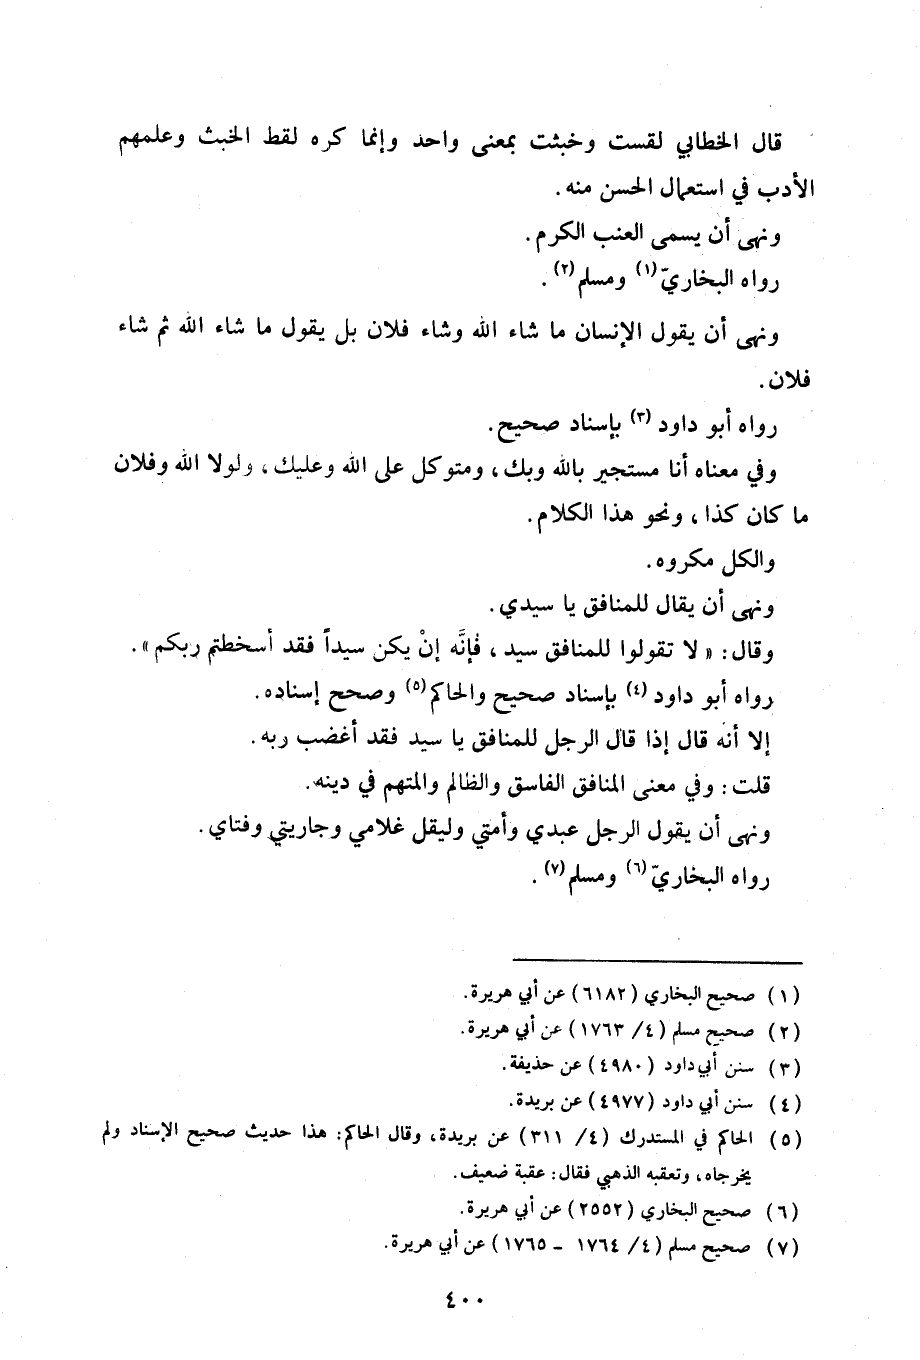 قال الخطابي لقست وخبثت بمعنى واحد وإنما كره لقط الخبث وعلمهم
الأدب في استعمال الحسن منه.
ونهى أن يسمى العنب الكرم.
رواه البخاريّ(١) ومسلم(٢).
ونهى أن يقول الإنسان ما شاء الله وشاء فلان بل يقول ما شاء الله ثم شاء
فلان.
رواه أبو داود (٣) بإسناد صحيح.
وفي معناه أنا مستجير بالله وبك، ومتوكل على الله وعليك، ولولا الله وفلان
ما كان كذا، ونحو هذا الكلام.
والكل مكروه.
ونهى أن يقال للمنافق يا سيدي.
وقال: «لا تقولوا للمنافق سيد، فإنَّه إنْ يكن سيداً فقد أسخطتم ربكم».
رواه أبو داود (٤) بإسناد صحيح والحاكم(٥) وصحح إسناده.
إلا أنه قال إذا قال الرجل للمنافق يا سيد فقد أغضب ربه.
قلت: وفي معنى المنافق الفاسق والظالم والمتهم في دينه.
ونهى أن يقول الرجل عبدي وأمتي وليقل غلامي وجاريتي وفتاي.
رواه البخاريّ(٦) ومسلم(٧).
(١) صحيح البخاري (٦١٨٢) عن أبي هريرة.
(٢) صحيح مسلم (٤/ ١٧٦٣) عن أبي هريرة.
(٣) سنن أبي داود (٤٩٨٠) عن حذيفة.
(٤) سنن أبي داود (٤٩٧٧) عن بريدة.
(٥) الحاكم في المستدرك (٤/ ٣١١) عن بريدة، وقال الحاكم: هذا حديث صحيح الإسناد ولم
يخرجاه، وتعقبه الذهبي فقال: عقبة ضعيف.
(٦) صحيح البخاري (٢٥٥٢) عن أبي هريرة.
(٧) صحيح مسلم (٤/ ١٧٦٤ - ١٧٦٥) عن أبي هريرة.
٤٠٠